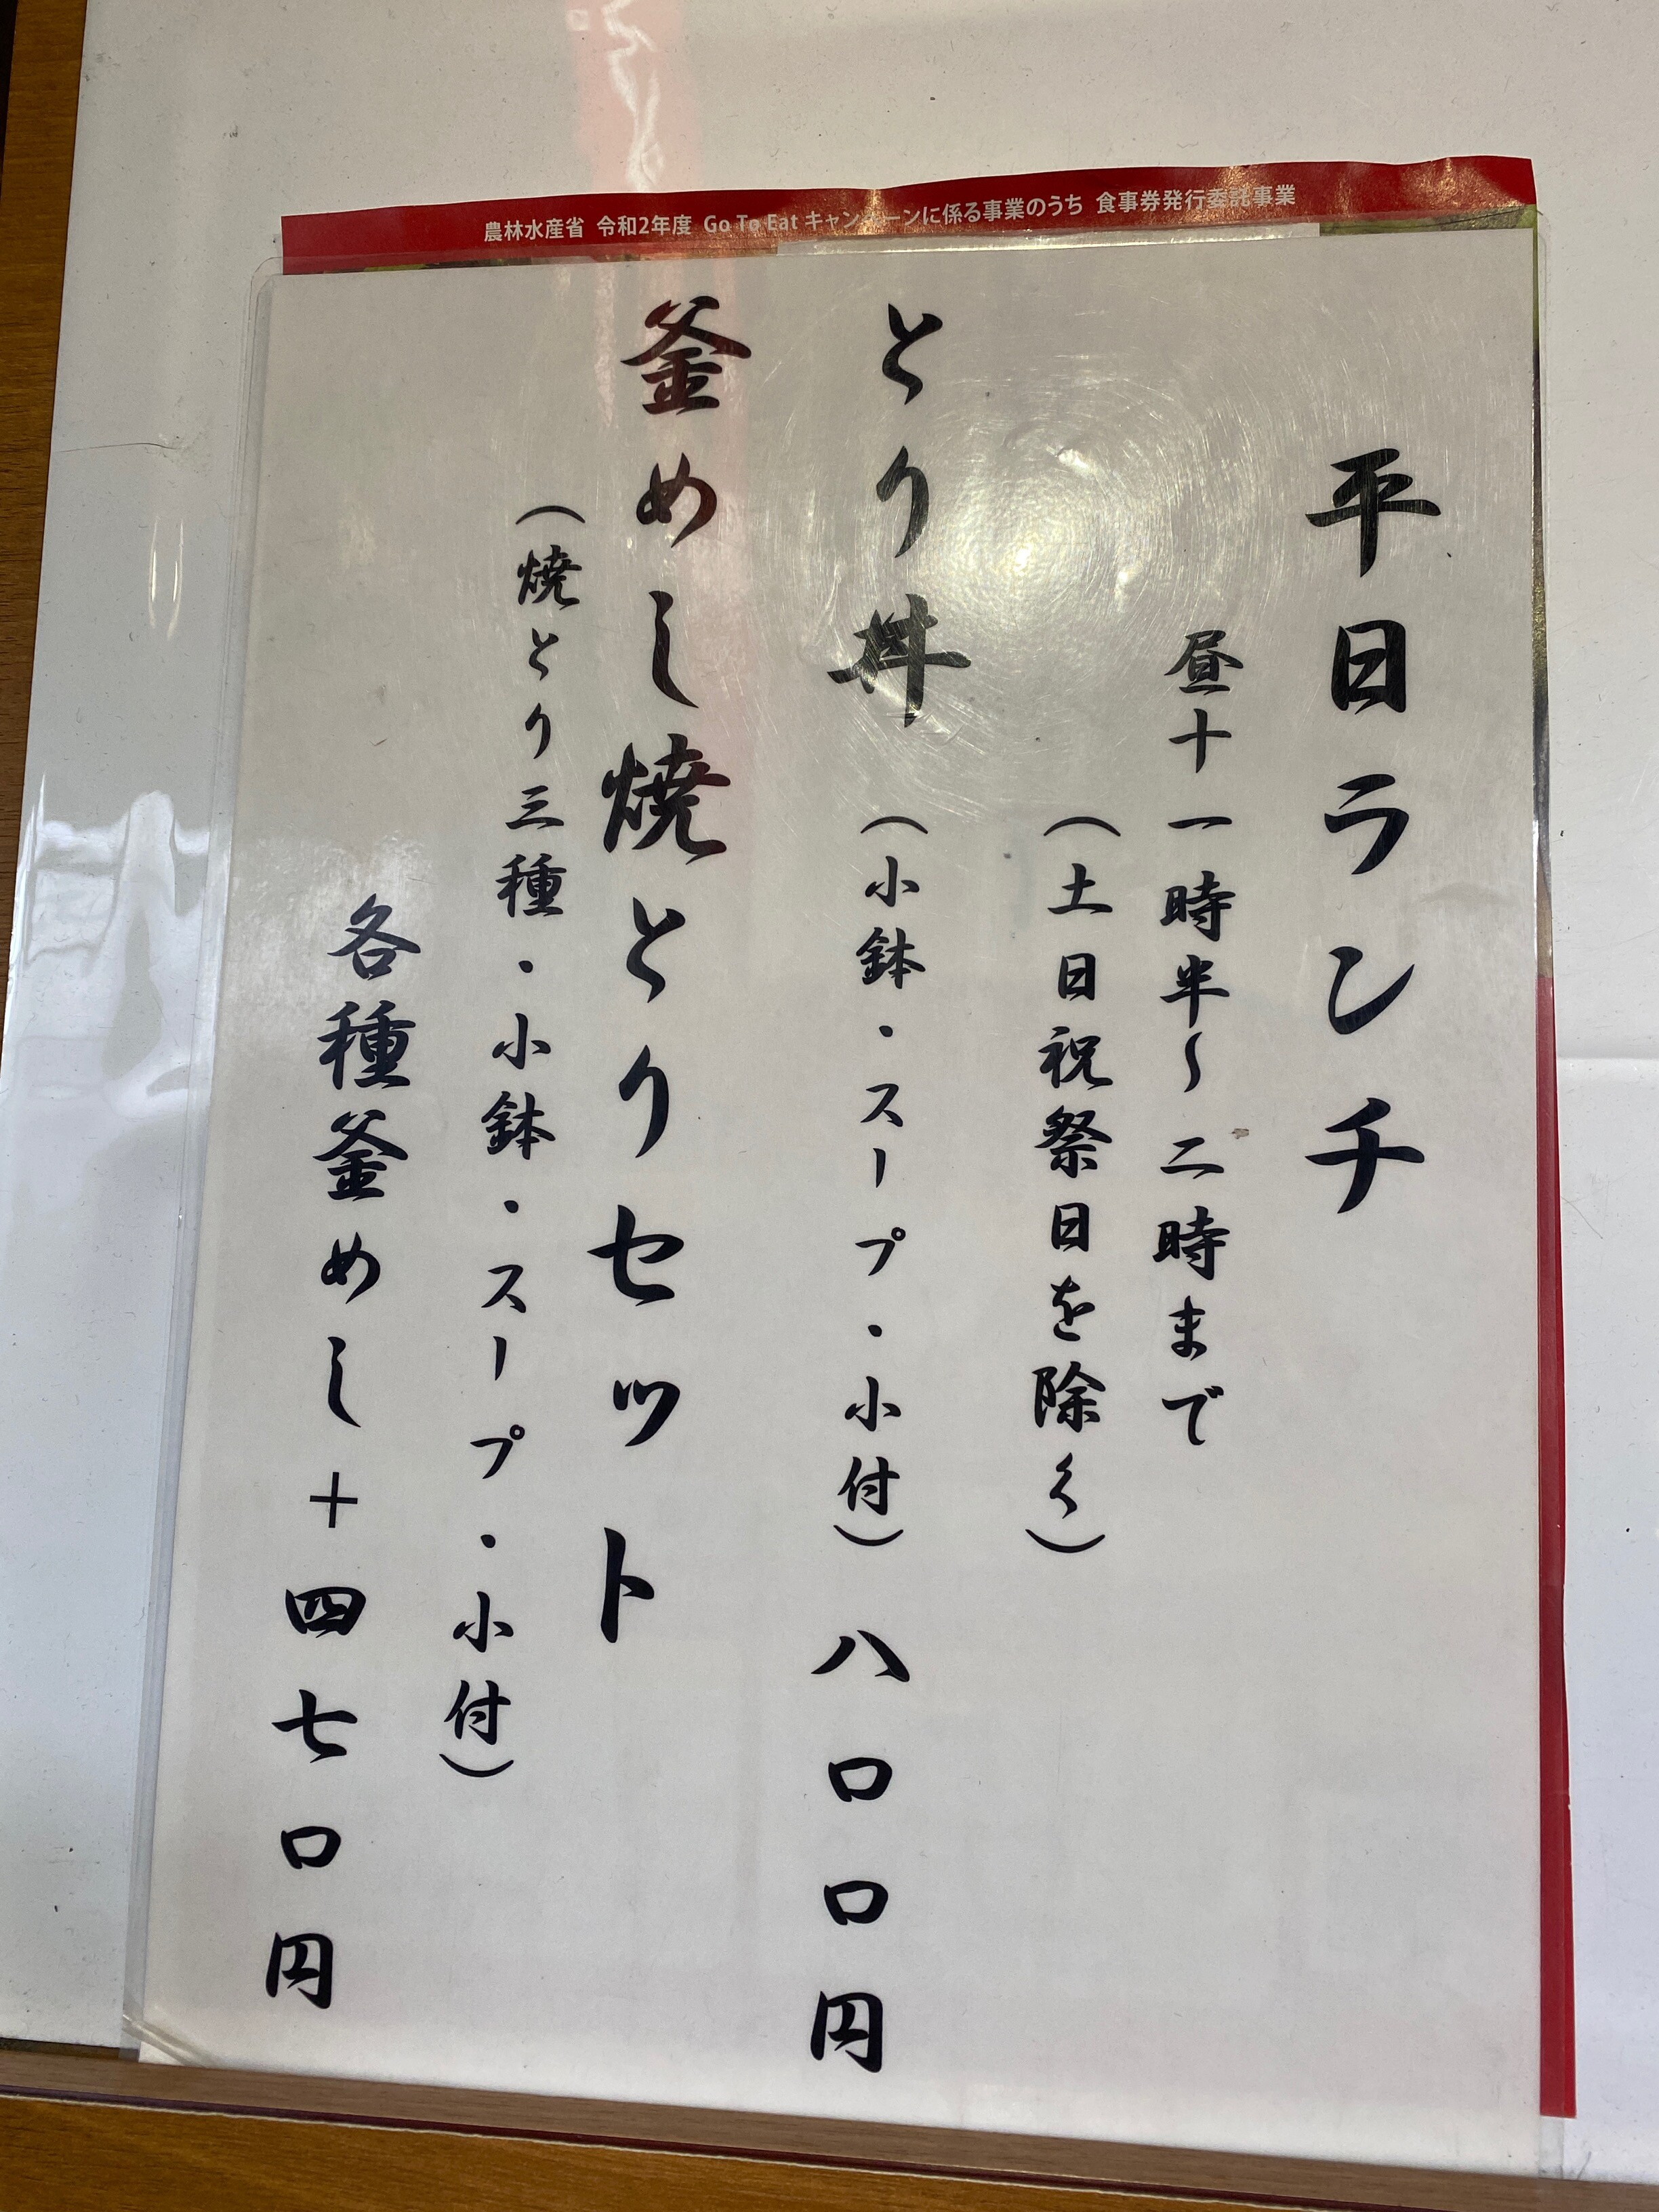 農林水産省 令和2年度 Go To Eat キャンペーンに係る事業のうち 食事券発行委託事業
平日ランチ
昼十一時半〜二時まで
(土日祝祭日を除く)
とり丼 (小鉢・スープ・小付) 八〇〇円
釜めし焼とりセット
(焼とり三種・小鉢・スープ・小付)
各種釜めし+四七〇円